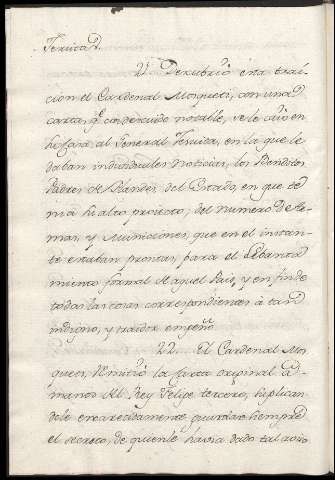 Jesuita.
21. Descubrió esta trai-
cion el Cardenal Mosquers, con una
carta, q.e con descuido notable, se le caió en
su casa al General Jesuita, en la que le
daban individuales noticias, los Benditos
Padres de Flandes del Estado, en que te-
nia su alto proiecto; del numero de Ar-
mas, y Municiones, que en el instan-
te estaban prontas, para el Lebanta-
miento formal de aquel Pais, y en fin de
todas las cosas correspondientes à tan
indigno, y traidor empeño.
22. El Cardenal Mos-
quers, remitió la carta original à
manos del Rey Felipe tercero, suplican-
dole encarecidamente guardase siempre
el secreto, de quien le havia dado tal aviso